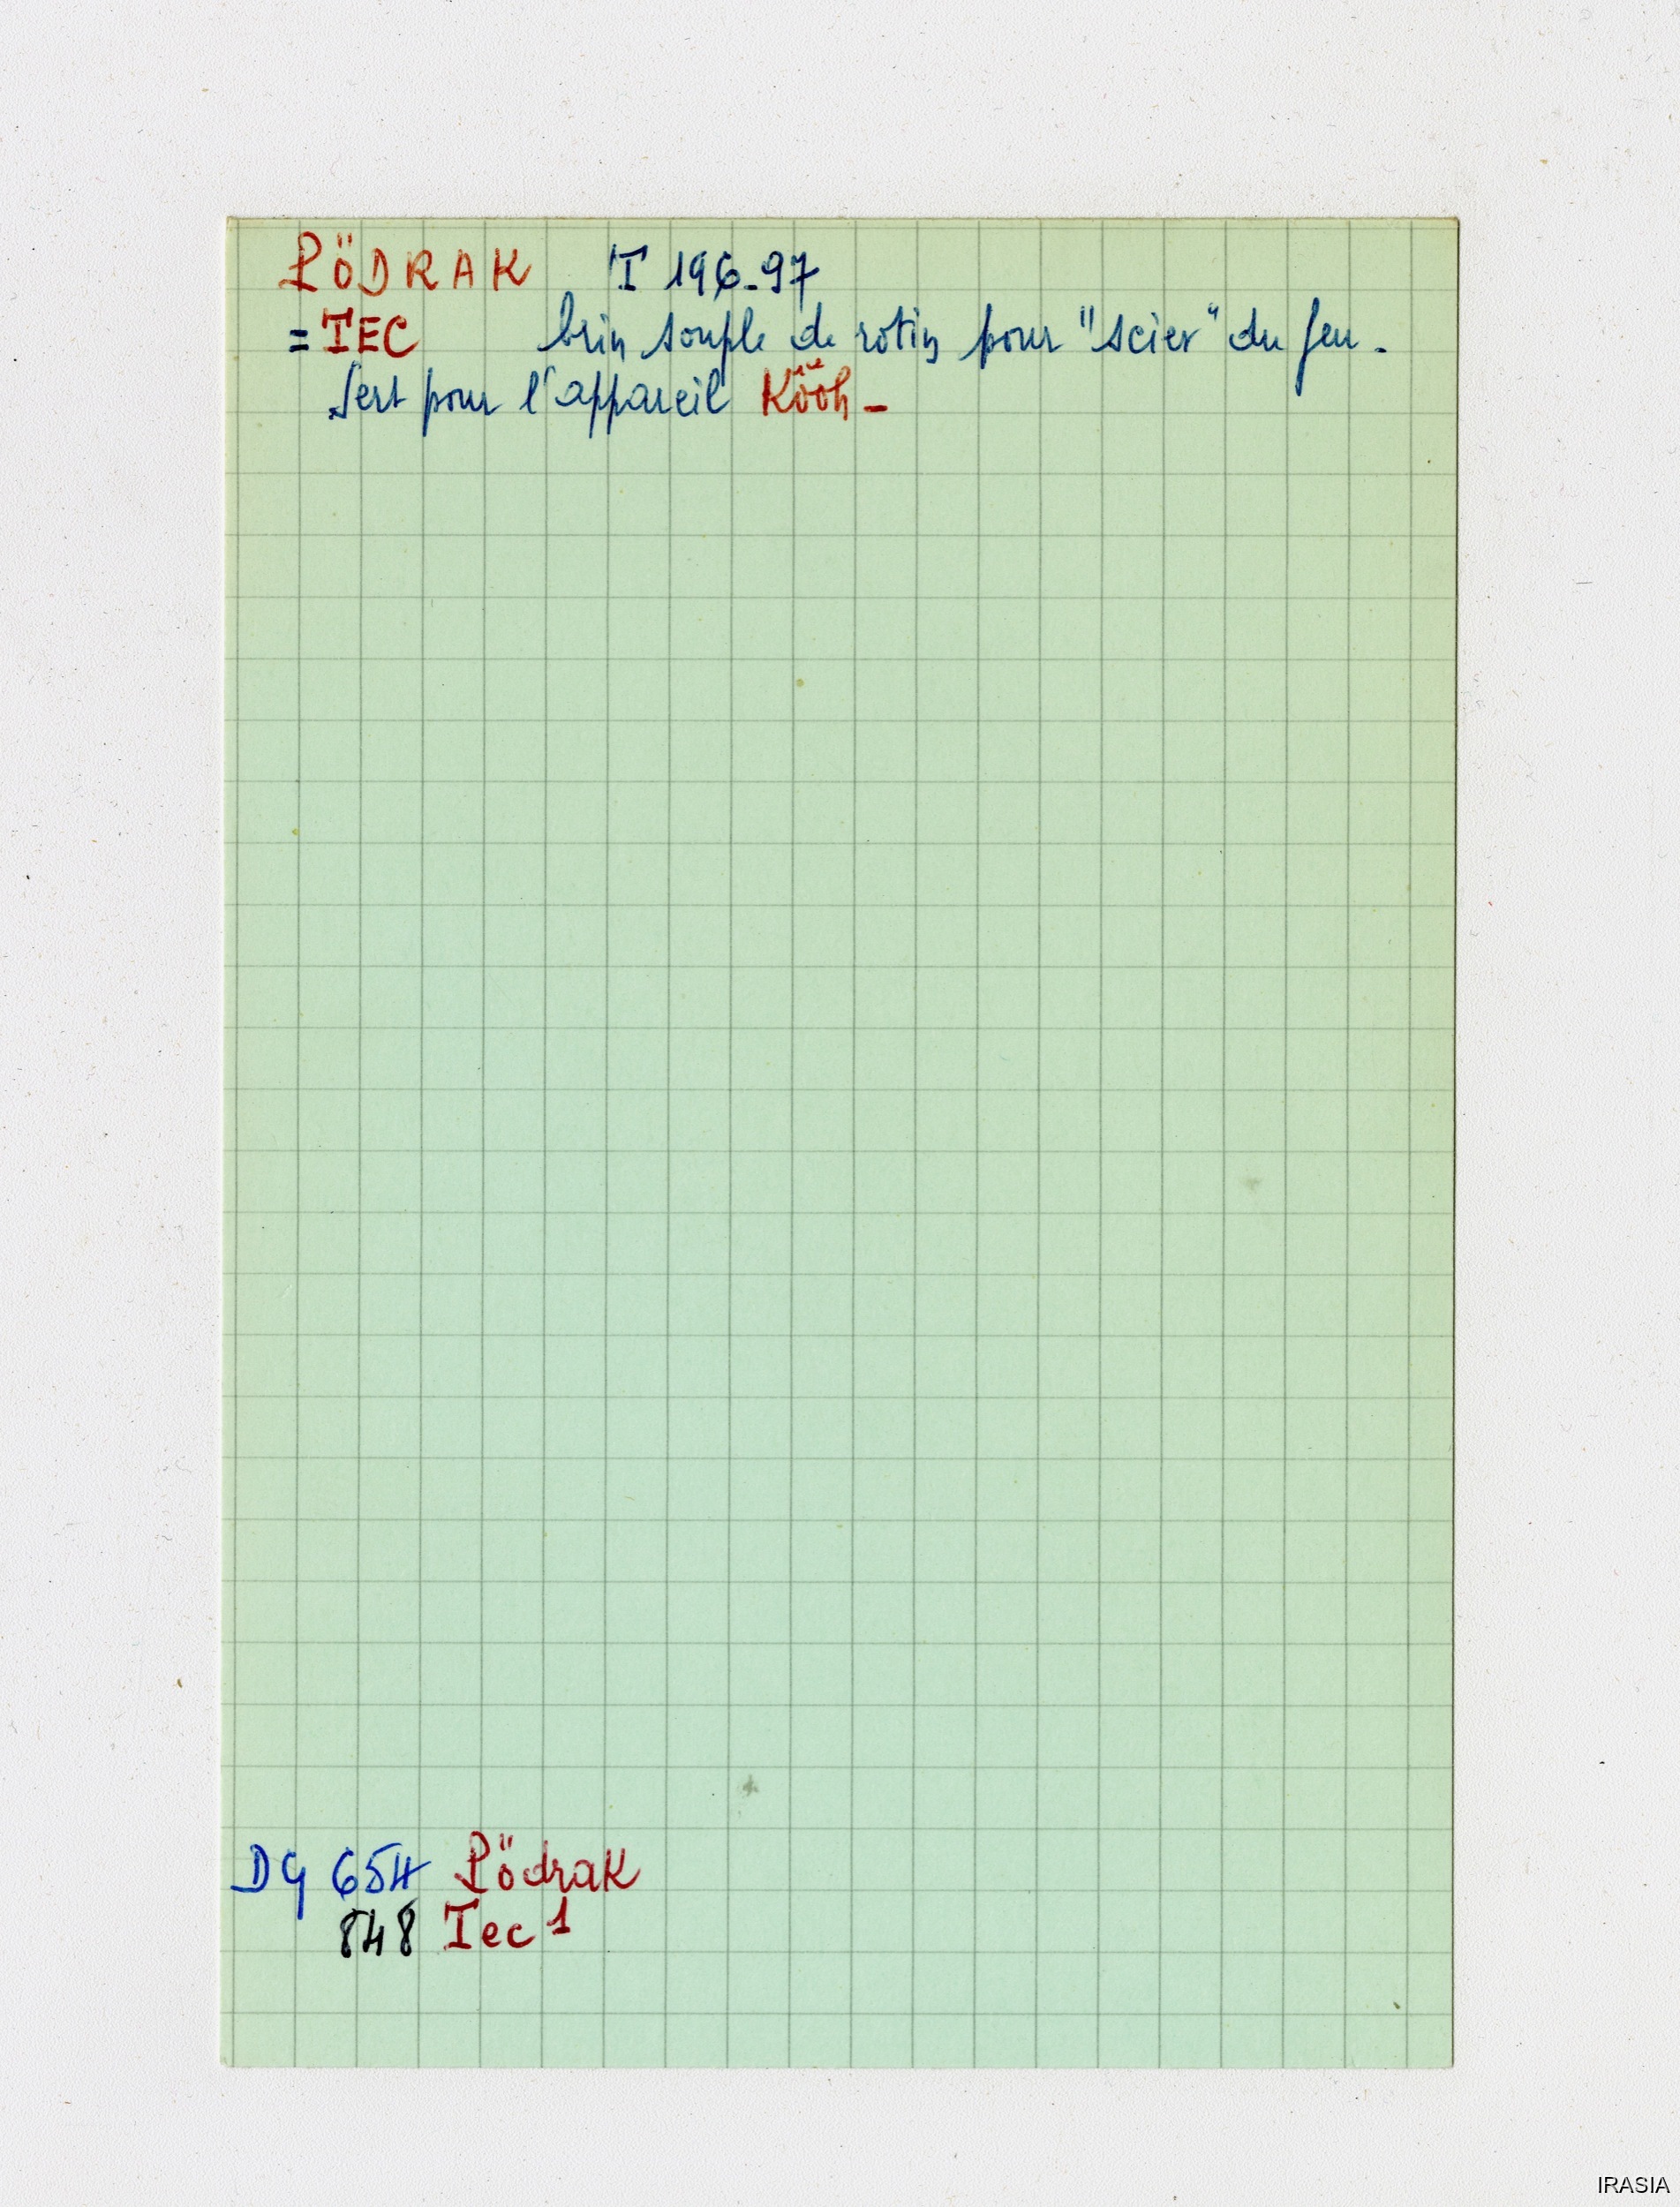 PÖDRAK T 196-97
= TEC brin souple de rotin pour "scier" du feu.
Sert pour l'appareil Kööh -
DG 654 Pödrak
848 Tec 1
IRASIA